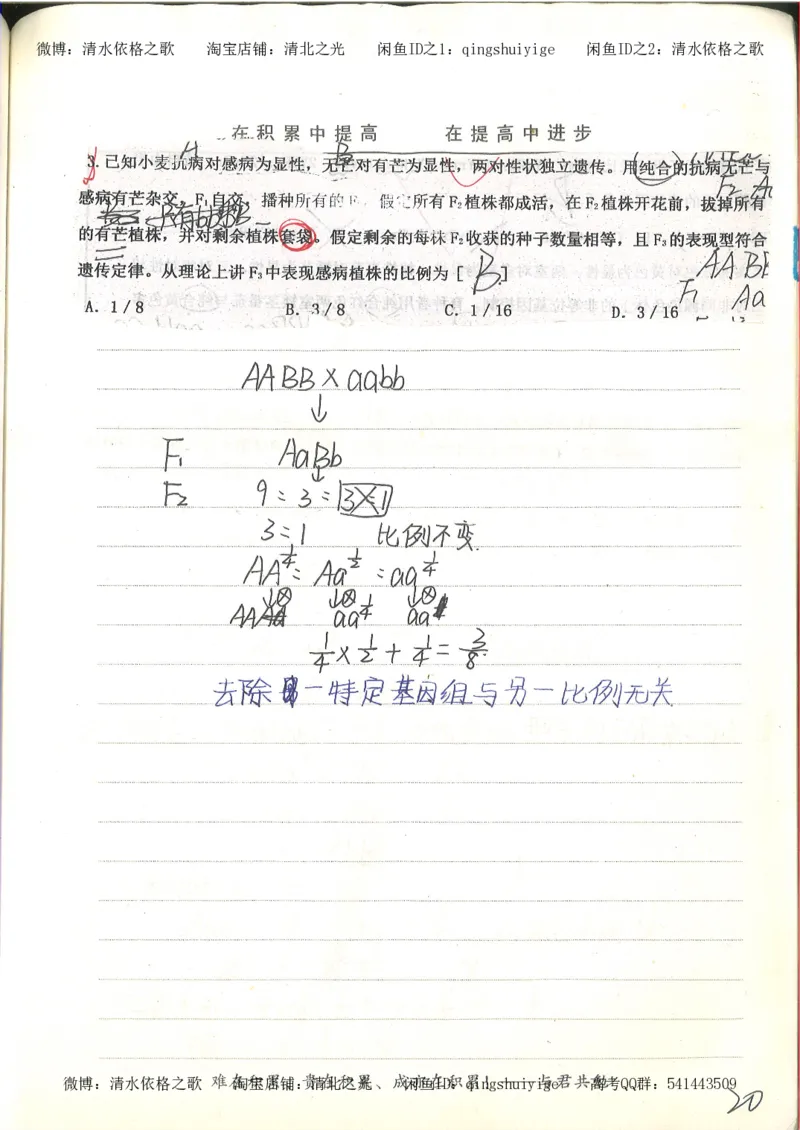 微博：清水依格之歌 淘宝店铺：清北之光 闲鱼ID之1：qingshuiyige 闲鱼ID之2：清水依格之歌
在积累中提高 在提高中进步
A B
3.已知小麦抗病对感病为显性，无芒对有芒为显性，两对性状独立遗传。用纯合的抗病无芒与
感病有芒杂交，F₁自交，播种所有的F₂，假定所有F₂植株都成活，在F₂植株开花前，拔掉所有
的有芒植株，并对剩余植株套袋。假定剩余的每株F₂收获的种子数量相等，且F₃的表现型符合
遗传定律。从理论上讲F₃中表现感病植株的比例为 [ B. ]
F₁ Aa
A. 1/8 B. 3/8 C. 1/16 D. 3/16
AABB×aabb
↓
F₁ AaBb
↓
F₂ 9:3:3:1
3:1 比例不变
AA 1/4 : Aa 1/2 : aa 1/4
↓⊗ ↓⊗ ↓⊗
AA aa 1/4 aa
1/4 × 1/2 + 1/4 = 3/8
去除一特定基因组与另一比例无关
微博：清水依格之歌 淘宝店铺：清北之光 闲鱼ID：qingshuiyige 高考QQ群：541443509
20